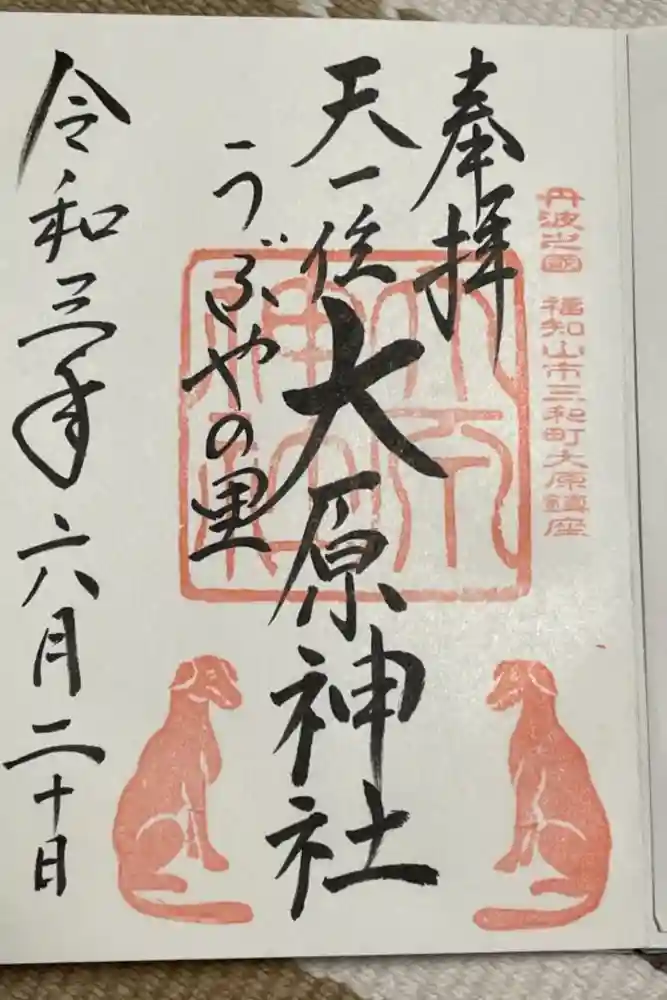 丹波之國 福知山市三和町大原鎮座
奉拝
天一位大原神社
うぶやの里
令和三年六月二十日
大原神社